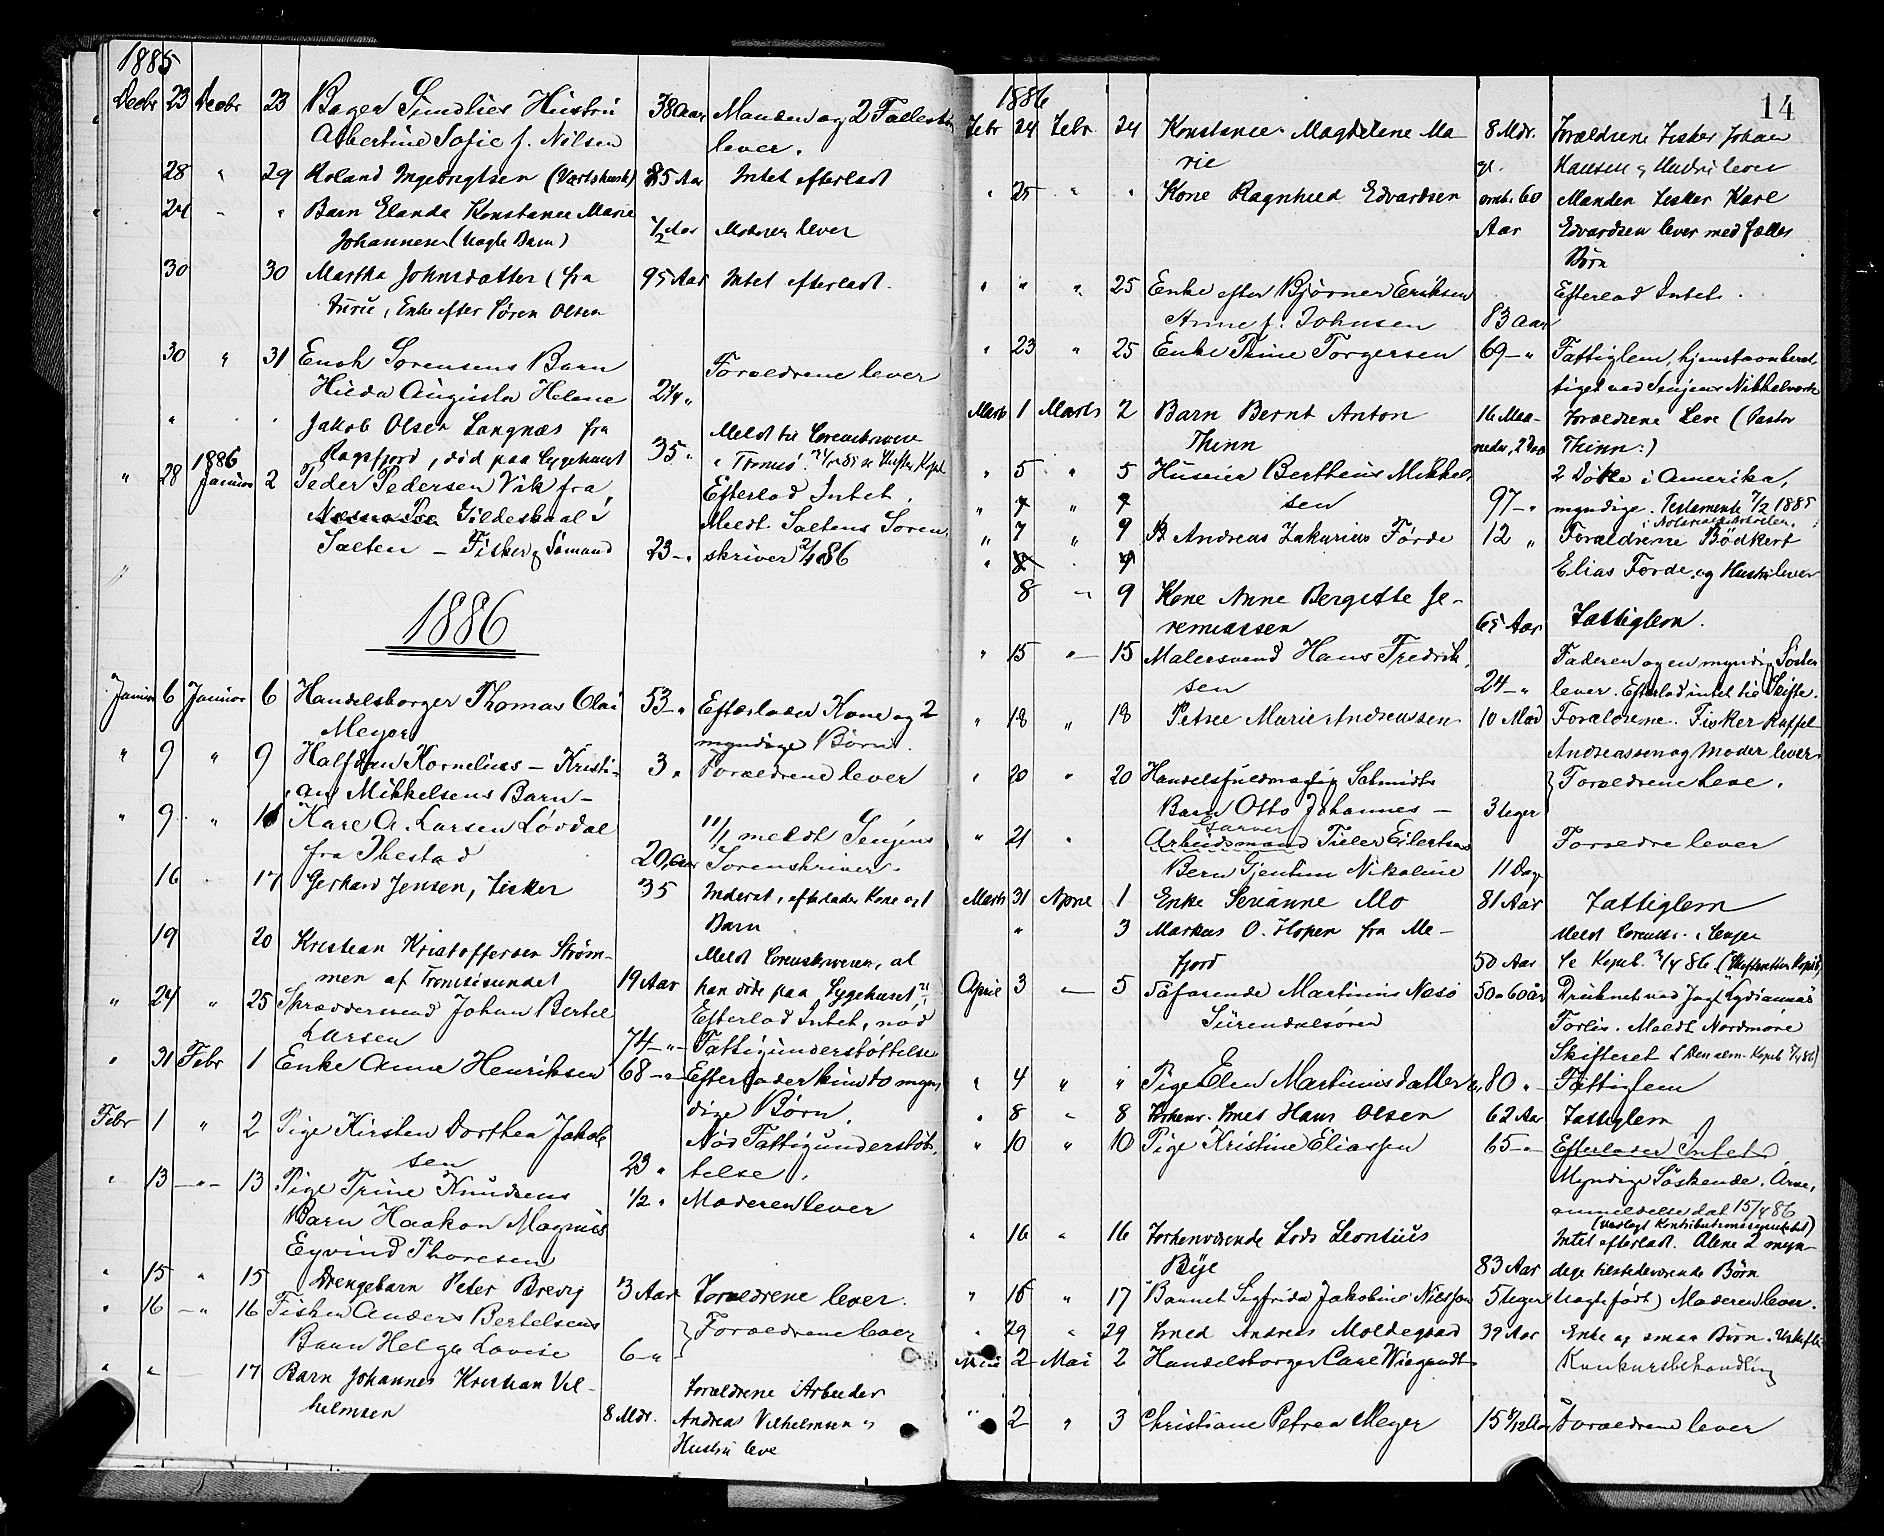 1885
Decbr 23 Decbr 23 Bager Hustru 38 Aar Manden og 2
Albertine Sofie f. Nilsen lever.
28 " 29 Roland Ingebrigtsen 85 Aar Intet efterladt
24 - " Barn Elanda Konstance Marie
Johannesen (Uægte Barn) 1/2 Aar Moderen lever
30 30 Martha Johnsdatter (fra 95 Aar Intet efterladt.
Enke efter Sören Olsen
30 " 31 Enoch Sorensens Barn Forældrene lever
Hilda Augusta Helene 2 1/4 "
" " Jakob Olsen Langnæs fra Meldt til Sorenskriveren
død paa Sygehuset 35 "
1886
" 28 Januar 2 Peder Pedersen Vik fra Efterlod Intet.
Gildeskaal i Meldt Saltens Soren
Salten - Fisker og Sömand 23 - " skriver 2/1 86
"
1886
Januar 6 Januar 6 Handelsborger Thomas Olai 53 - " Efterlader Kone og 2
Meyer myndige Börn.
" 9 " 9 Halfdan Kornelius - Kristi- 3 " Forældrene lever
an Mikkelsens Barn -
" 9 " Karl A. Larsen Lövdal 11/1 meldt Senjens
fra Ibestad 20 Aar Sorenskriver.
16 . 17 Gerhard Jensen, Fisker 35 efterlader Kone og 1
Barn
19 20 Kristian Kristoffersen Ström- Meldt Sorenskriveren, at
men af Tromsösundet 19 Aar han døde paa Sygehuset
" 24 " 25 Skræddersvend Johan Bertel Efterlod Intet, nød
Larsen 74 - " - Fattigunderstöttelse
" 31 Febr 1 Enke Anne Henriksen 68 - " Efterlader kun to myn
dige Börn.
Febr 1 " 2 Pige Kirsten Dorthea Jakob Nöd Fattigunderstöt-
sen 23 " telse.
" 13 - " - 13 Pige Trine Knudsens 1/2 " Moderen lever
Barn Haakon Magnus
Eyvind Thoresen
" 15 " 15 Drengebarn Peter Brevig 3 Aar Forældrene lever.
" 16 - " 16 Fisker Anders Bertelsens Forældrene lever
Barn Helga Lovise 6 - "
" " 17 Barn Johannes Kristian Vil- Forældrene Arbeider
helmsen 8 Mdr. Andreas Vilhelmsen og
Hustru leve
14
1886
Febr 24 Febr 24 Konstance Magdelene Ma- 8 Mdr. Forældrene Fisker Johan
rie gl. Hansen og Hustru lever
" 25 " " Kone Ragnhild Edvardsen omtr. 60 Manden Fisker Karl
Aar Edvardsen lever med fælles
Börn
" " " 25 Enke efter Bjørner Eriksen Efterlod Intet.
Anne f. Johnsen 83 Aar
" 23 " 25 Enke Trine Torgersen 69 - " Fattiglem, hjemstavnsberet
tiget ved Senjens Nikkelværk
Marts 1 Marts 2 Barn Bernt Anton 16 Maa- Forældrene Leve (Pastor
Thinn neder, 2 Thinn:)
" 5 " 5 Huseier Bertheus Mikkel 2 Døttre i Amerika,
sen 97 - " myndige. Testamente 7/2 1885
" 7 " 9 B Andreas Zakarias Förde 12 " Forældrene Bödker
Elias Förde, og Hustru lever
8 - 9 Kone Anne Bergitte Je-
remiassen 65 Aar Fattiglem.
" 15 " 15 Malersvend Hans Fredrik Faderen og en myndig Söster
sen 24 - " lever. Efterlod intet til Skifte.
" 18 " 18 Petree Marie Andreassen 10 Mdr Forældrene. Fisker
Andreassen og Moder lever
" 20 " 20 Handelsfuldmægtig Schmidts Forældrene leve.
Barn Otto Johannes - 3 Uger
" 21 " Garver
Arbeidsmand Eilertsens Forældre lever
Barn Nikoline 11 Dage
Marts 31 April 1 Enke Serianne Mo 81 Aar Fattiglem
" 3 Markus O. Hopen fra Me-
fjord 50 Aar
April 3 - 5 Söfarende Martinus Næsö 50 a 60 år Druknet ved Jagt
Surendalsören Forlis. Meldt Nordmöre
Skifteret
" 4 " " Pige Elen Martinusdatter 80 " Fattiglem
" 8 " 8 Forhenv. Smed Hans Olsen 62 Aar Fattiglem
" 10 " 10 Pige Kristine Eliassen 65 - " Efterlader Intet
Myndige Söskende.
anmeldelse dat 15/4 86
" 16 " 16 Forhenværende Lods Leontius Intet efterladt. Alene 2 myn-
Bye 83 Aar dige tilstedeværende Börn
" 16 " 17 Barnet Sigfrida Jakobine Nilssen 5 Uger Uægte født) Moderen lever.
" 29 " 29 Smed Andreas Moldegaard 39 Aar Enke og smaa Börn.
Mai 2 Mai 2 Handelsborger Carl Wiegandt Konkursbehandling
" 2 " 3 Christiane Petrea Meyer 15 Forældrene lever